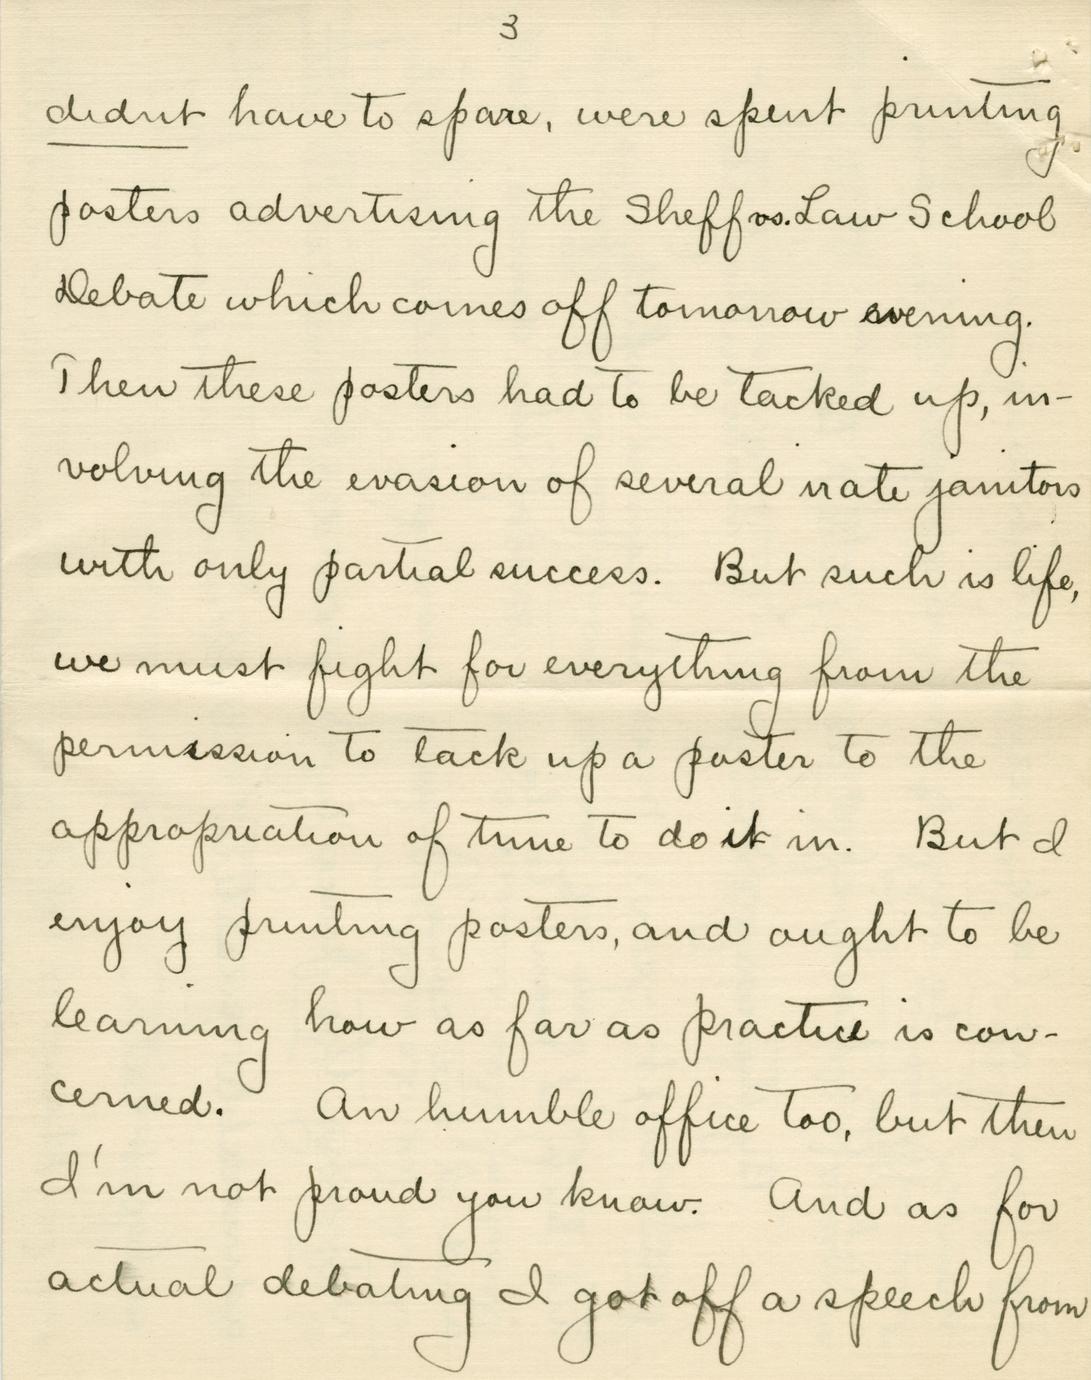 3
didnt have to spare, were spent printing
posters advertising the Sheff vs. Law School
Debate which comes off tomorrow evening.
Then these posters had to be tacked up, in-
volving the evasion of several irate janitors
with only partial success. But such is life,
we must fight for everything from the
permission to tack up a poster to the
appropriation of time to do it in. But I
enjoy printing posters, and ought to be
learning how as far as practice is con-
cerned. An humble office too, but then
I'm not proud you know. And as for
actual debating I got off a speech from